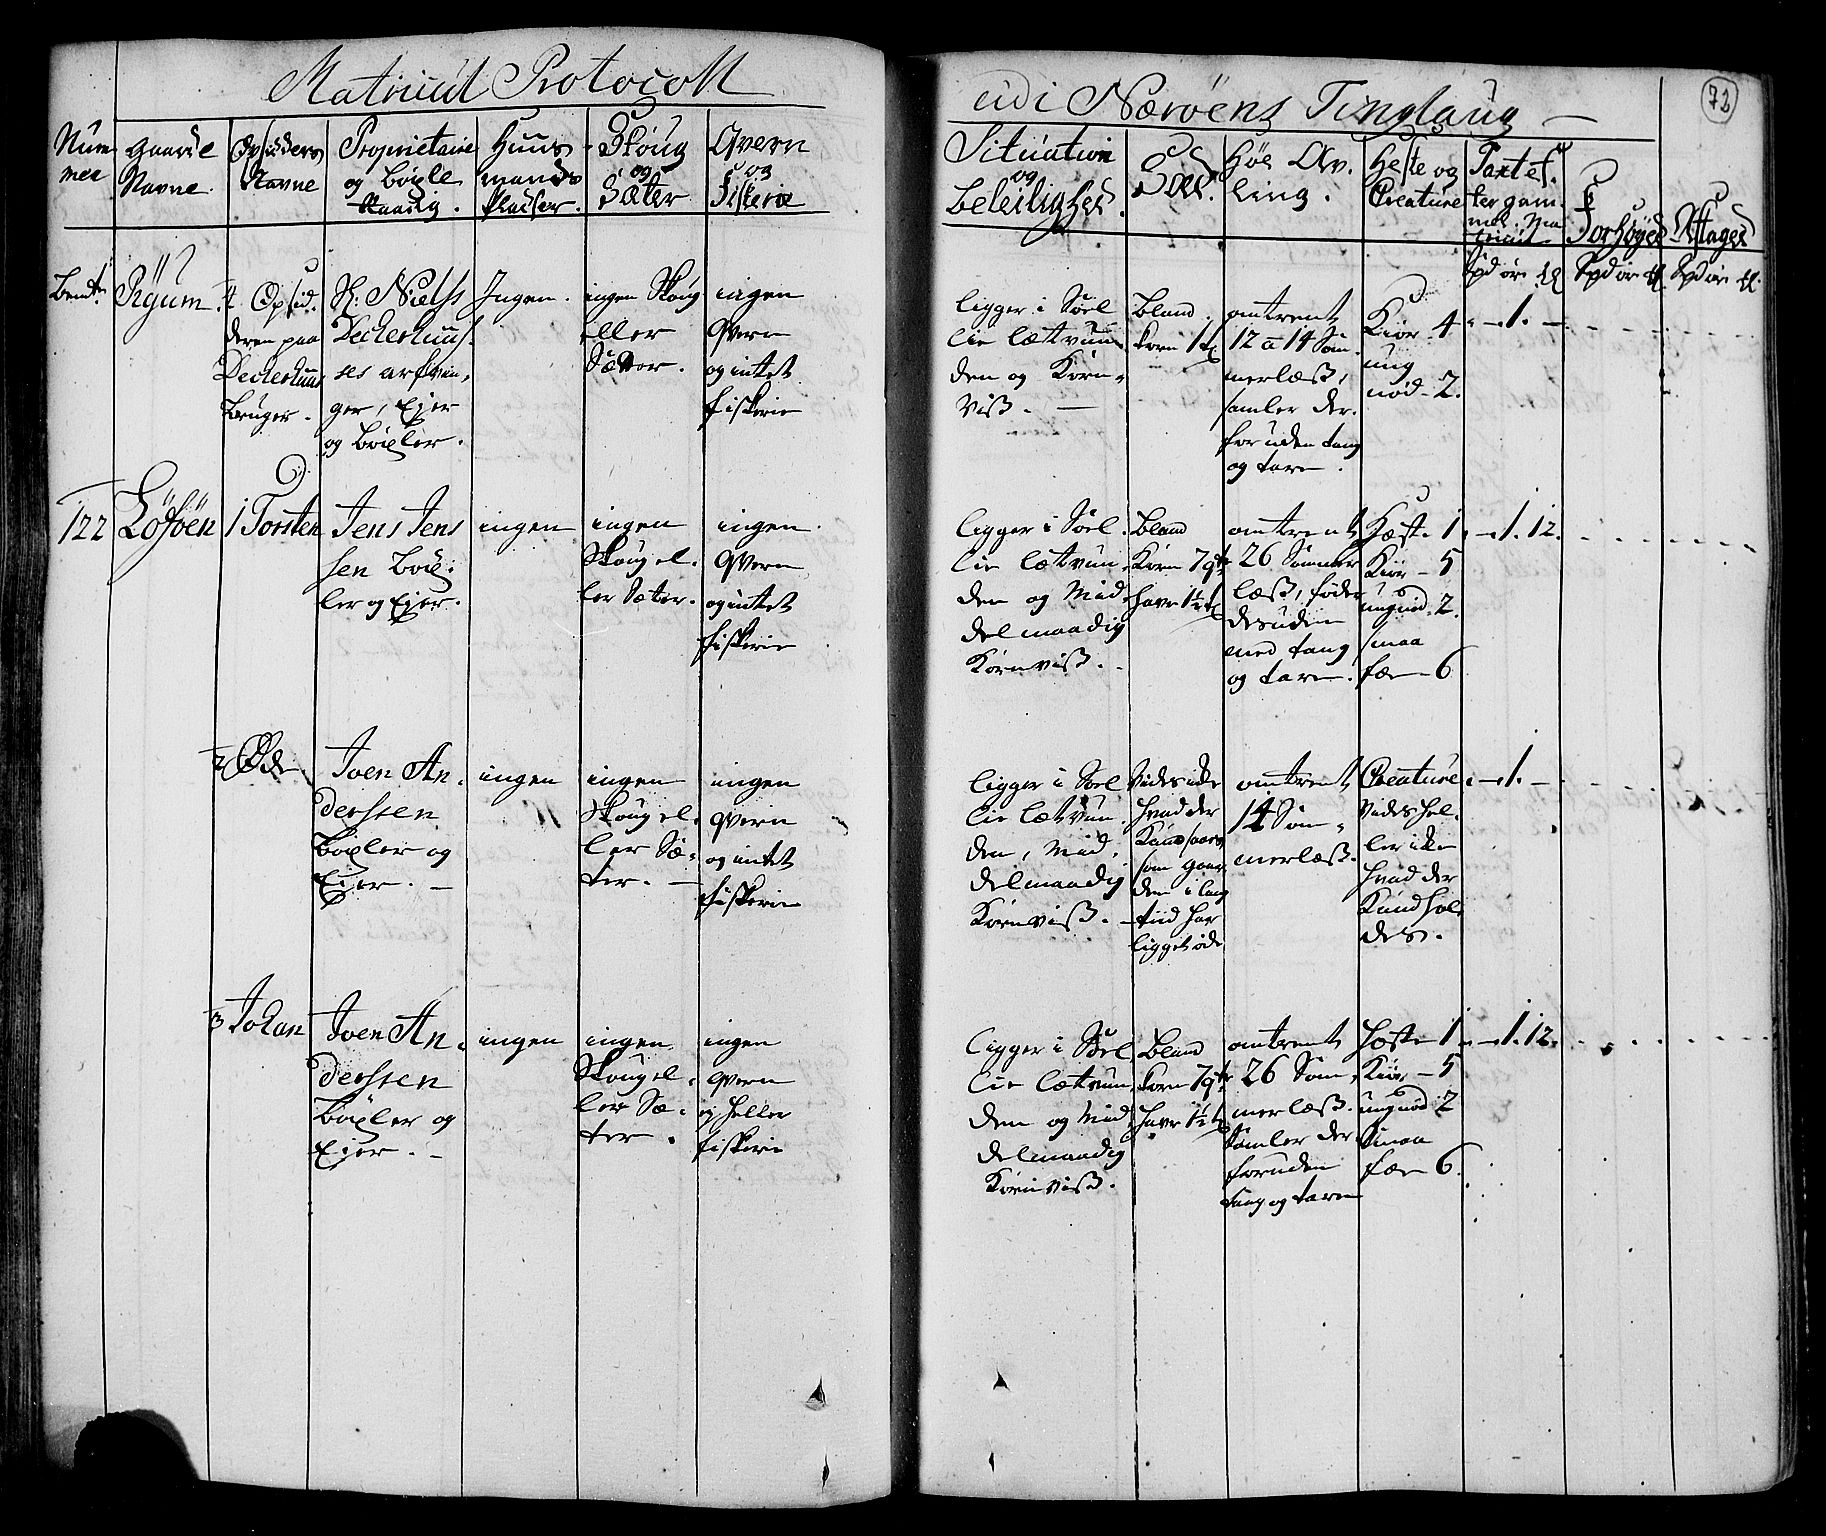 Matricul Protocoll
udi Nærøens Tinglaug
72
Num
mer
Gaarde
Navne.
Opsidders
Navne
Proprietaire
og böxle
Raadig.
Huus
mands
pladser.
Skoug
og
Sæter
Qvern
og
Fiskerie
Situation
og
beleilighed.
Sæd.
Höe Av.
ling.
Heste og
Creature
Taxt ef.
ter gam.
mel Ma
tricul
Forhöyed
Aftaged
Spd ört ℔
Spd ört ℔
Spd ört ℔
Bemt.
Ryum.
4 Opsid.
deren paa
Deckerhuus
bruger.
Sl: Niels
Deckerhuus.
ses arfvin,
ger, Ejer
og böxler.
Ingen.
ingen Skoug
eller
Sæter.
ingen
Qvern
og intet
fiskerie
ligger i Soel
lie lætvun,
den og Korn,
viss.
bland.
korn 1 t
omtrent
12 a 14 Som,
merlæss,
samler der.
foruden tang
og tare.
Kiör - 4
ung
nød - 2.
. - 1. -
122
Löföen
1 Torsten
Jens Jens
sen böx,
ler og Ejer.
ingen
ingen
Skoug el.
ler Sæter.
ingen.
Qvern
og intet
fiskerie
ligger i Soel.
lie lætvun,
den og Mid
delmaadig
Kornviss.
bland
Korn 7 qtr
havre 1½ t
omtrent
26 Sommer
læss, föder
desuden
med tang
og tare.
Hæst. 1.
Kiör - 5
ungnød. 2.
smaa
fæe - 6
- 1. 12.
2 Øde
Iven An,
derssen
Böxler og
Ejer. -
ingen
ingen
Skoug el.
ler Sæ,
ter. -
ingen
Qvern
og intet
fiskerie
ligger i Soel
lie lætvun,
den, Mid,
delmaadig
Kornviss. -
Vides ikke
hvad der
Kand saaes
som gaar,
den i lang
tiid har
ligget øde
omtrent
14 Som,
merlæss.
Creature
vides hel.
ler ikke
hvad der
Kand hol
des.
. - 1. -
3 Johan
Iven An,
derssen
Böxler og
Ejer. -
ingen
ingen
Skoug el.
ler Sæ,
ter.
ingen
Qvern
ej heller
fiskerie
ligger i Soel
lie lætvun,
den og Mid,
delmaadig
Kornviss.
bland
korn 7 qtr
havre 1½ t
omtrent
26 Som,
merlæss.
Samler der
foruden
tang og tare
hæste 1.
Kiör - 5
ungnød 2
Smaa
fæe 6.
- 1. 12.